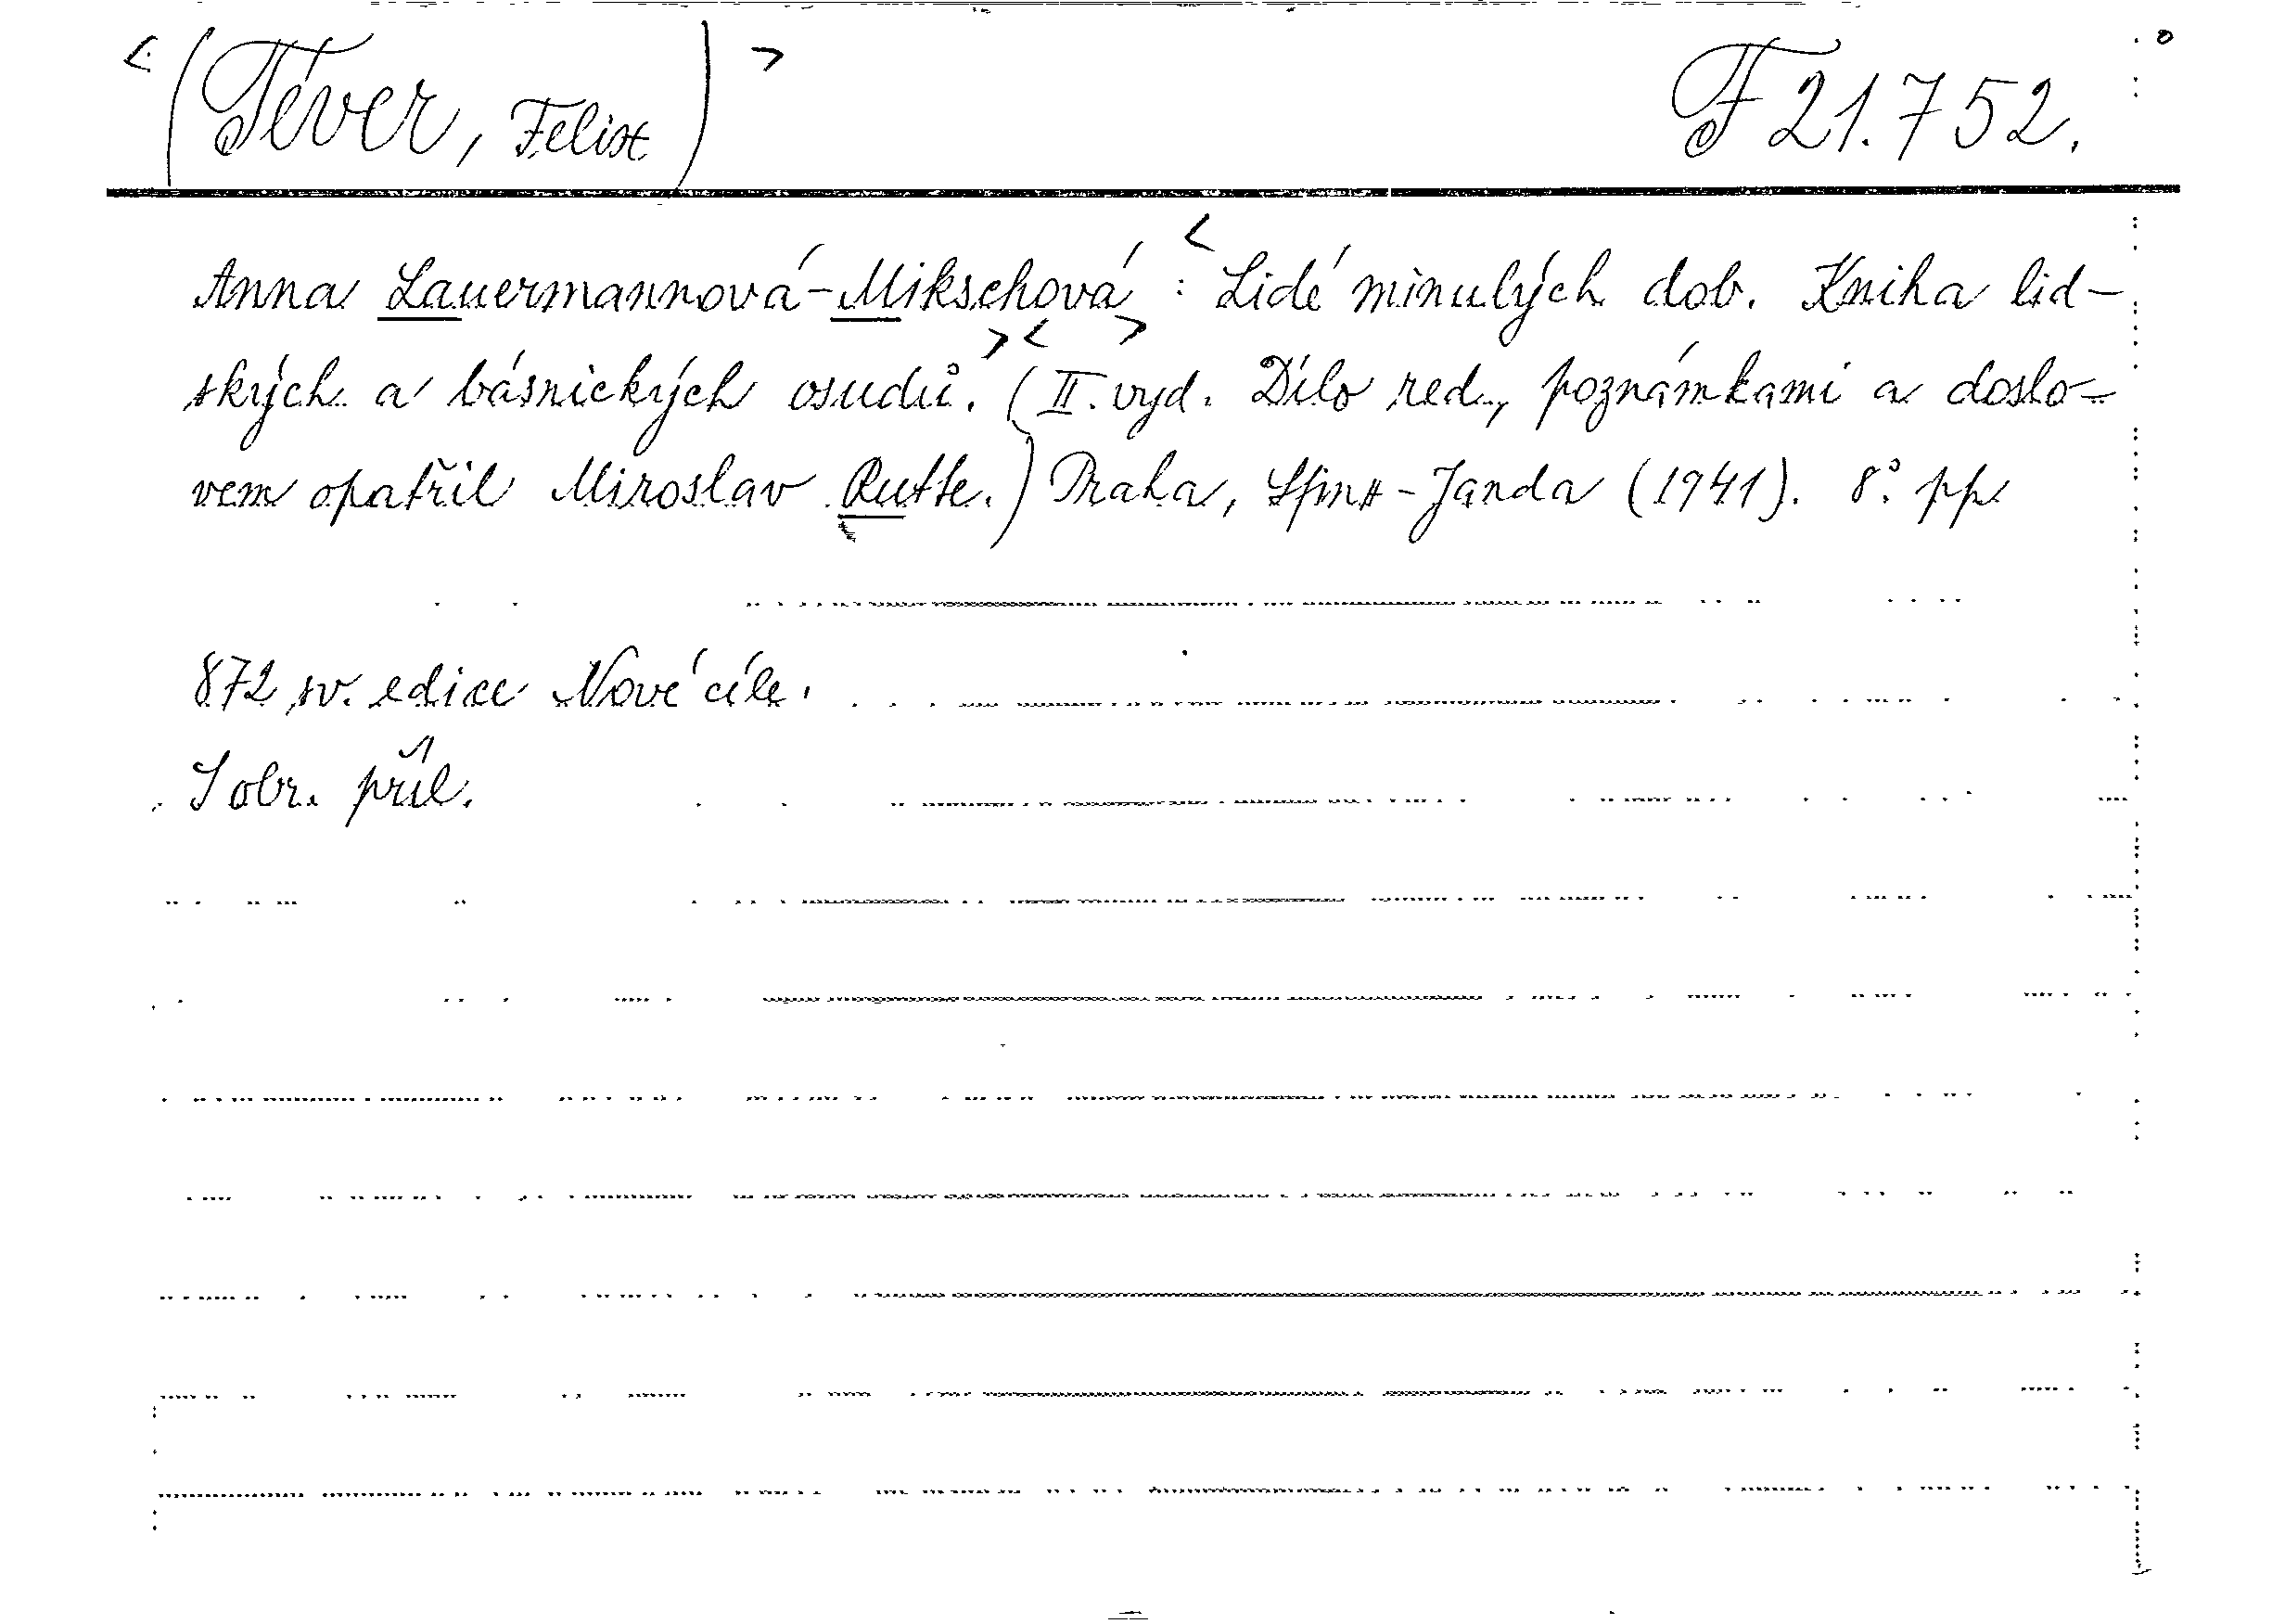 <(Téver, Felix)> F 21.752.
Anna Lauermannová-Mikschová : <Lidé minulých dob. Kniha lid-
ských a básnických osudů.> <(II. vyd.> Dílo red., poznámkami a doslo-
vem opatřil Miroslav Rutte.) Praha, Sfinx-Janda (1941). 8° pp
872 sv. edice Nové cíle.
S obr. příl.